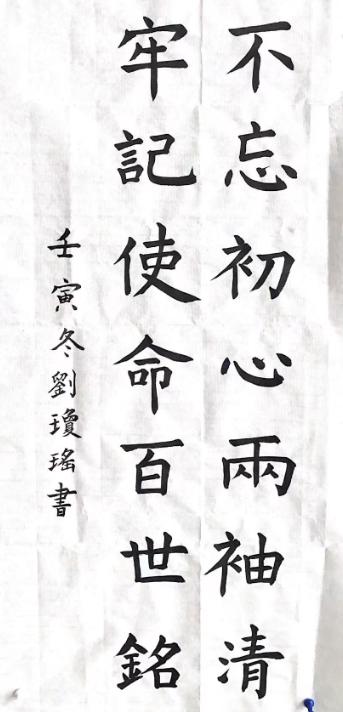 不忘初心兩袖清
牢記使命百世銘
壬寅冬劉瓊瑤書